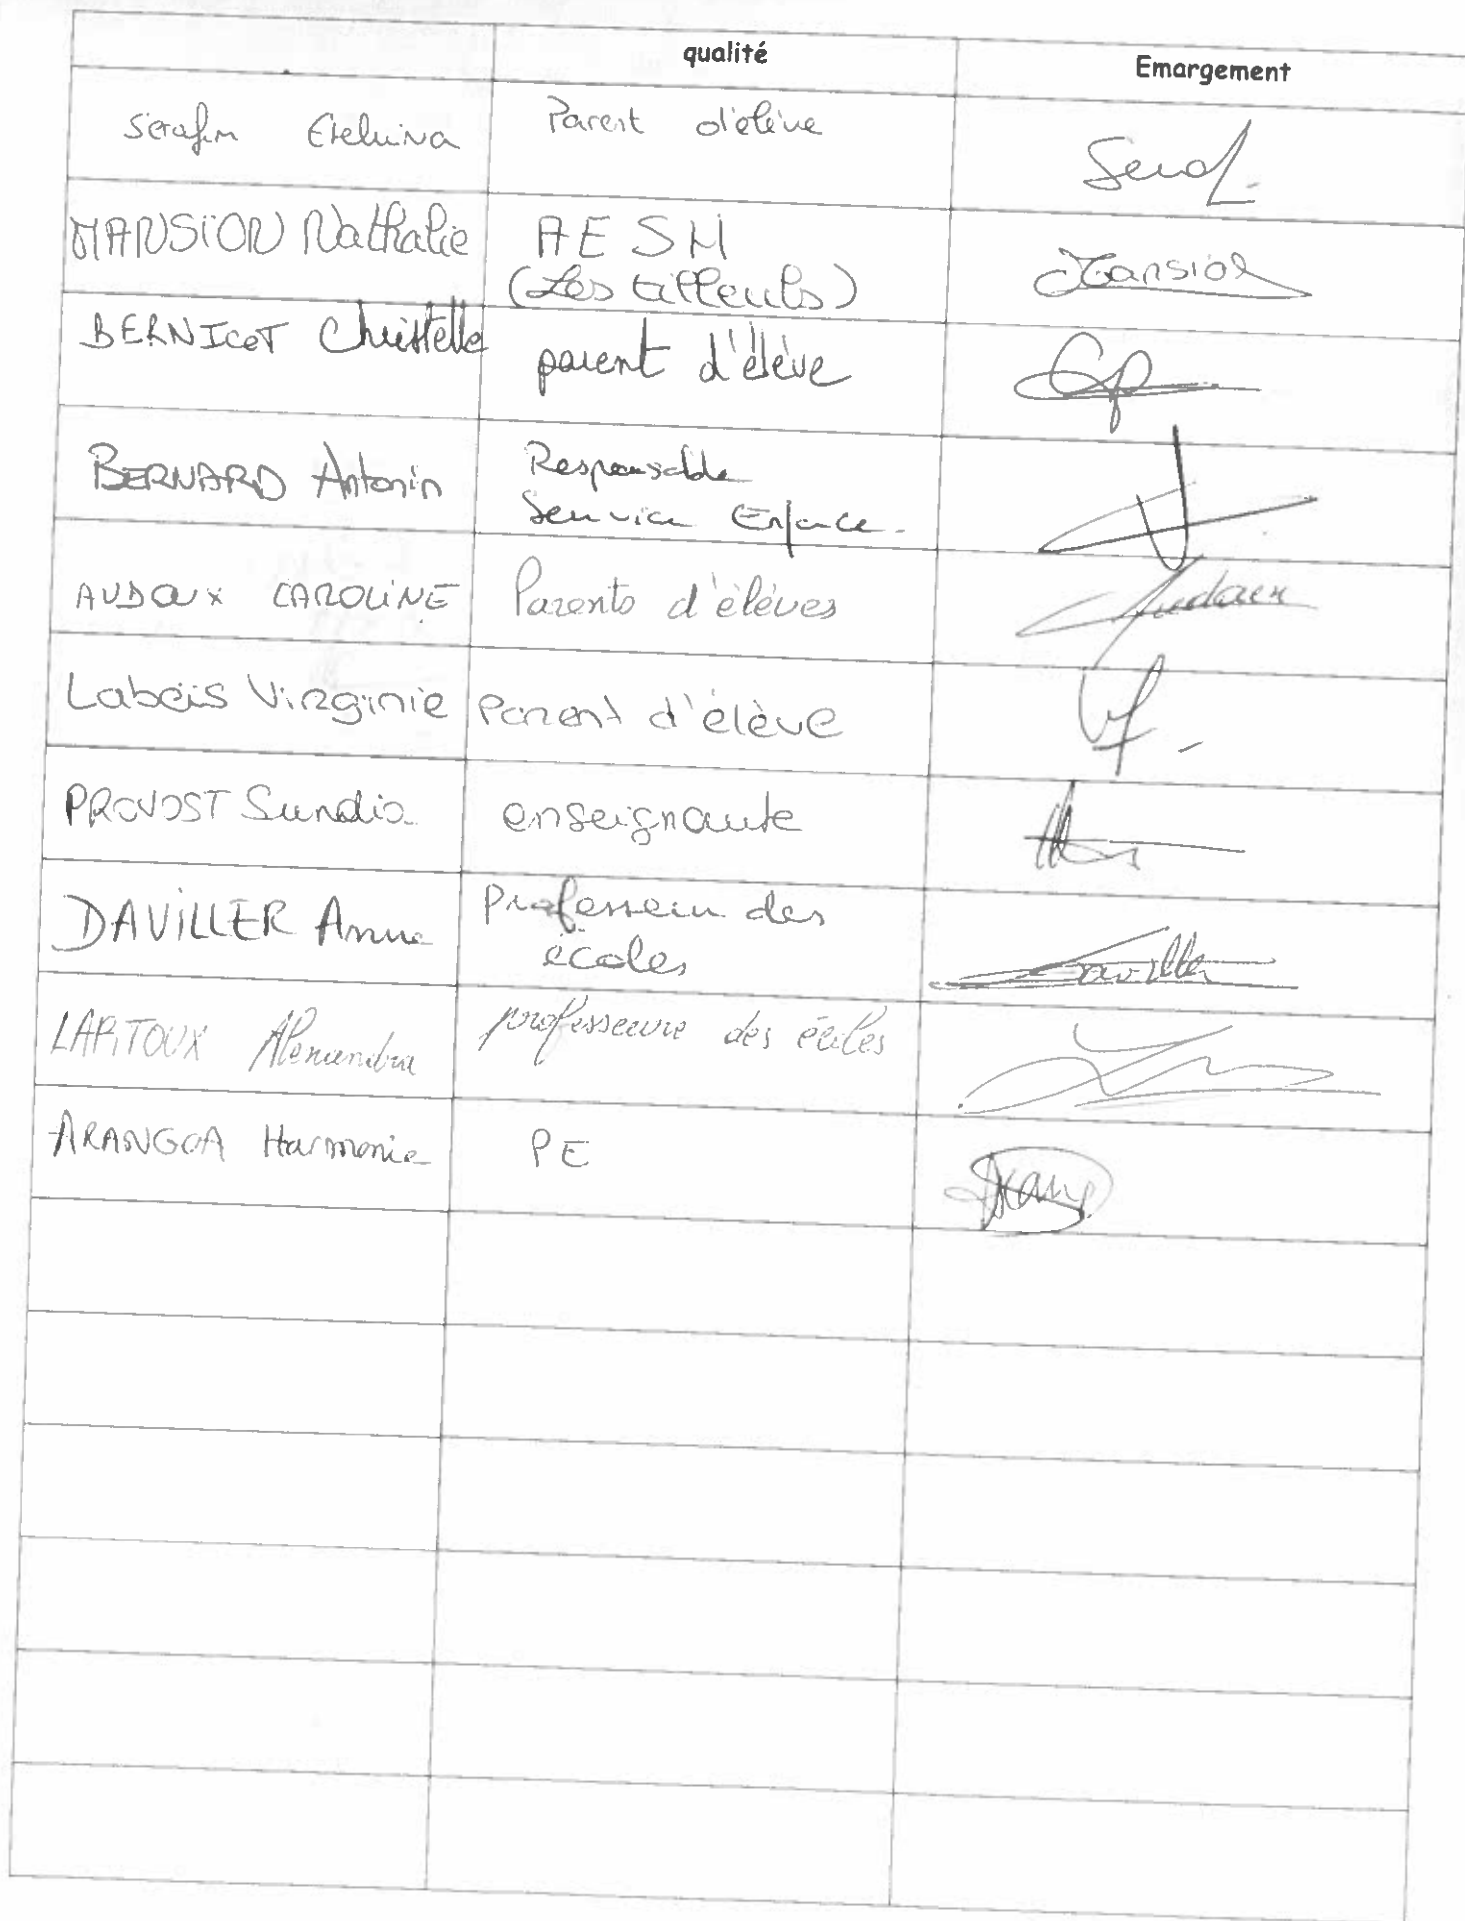 qualité Emargement
Serafim Etelvina Parent d'élève
MANSION Nathalie AESH
(Les tilleuls) Mansion
BERNICOT Christelle parent d'élève
BERNARD Antonin Responsable
Service Enfance.
AUDOUX CAROLINE Parents d'élèves Audoux
Labois Virginie Parent d'élève
PROVOST Sundia enseignante
DAVILLER Anne Professeur des
écoles Daviller
LARITOUX Alexandra professeure des écoles
ARANGOA Harmonie PE